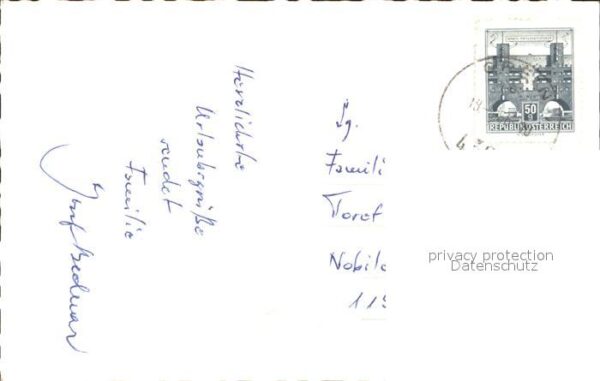 Herzlichste
Urlaubsgrüße
sendet
Familie
Josef
Fg.
Famili
Josef
Nobile
113
50
REPUBLIK ÖSTERREICH
privacy protection
Datenschutz